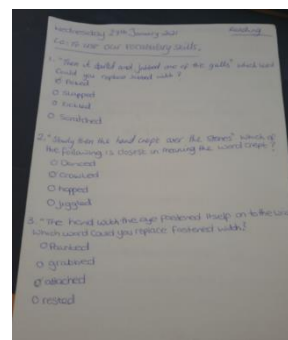 Wednesday 27th January 2021 Reading
LO: to use our vocabulary skills.
1. "Then it and joined one of the gulls" which word
Could you replace joined with?
O
O snapped
O
O Scratched
2. "Slowly then this hand crept over the stones" which of
the following is closest in meaning the word crept?
O Danced
O crawled
O hopped
O jiggled
3. "The hand with the eye fastened itself on to the
which word could you replace fastened with?
O
O grabbed
O attached
O rested